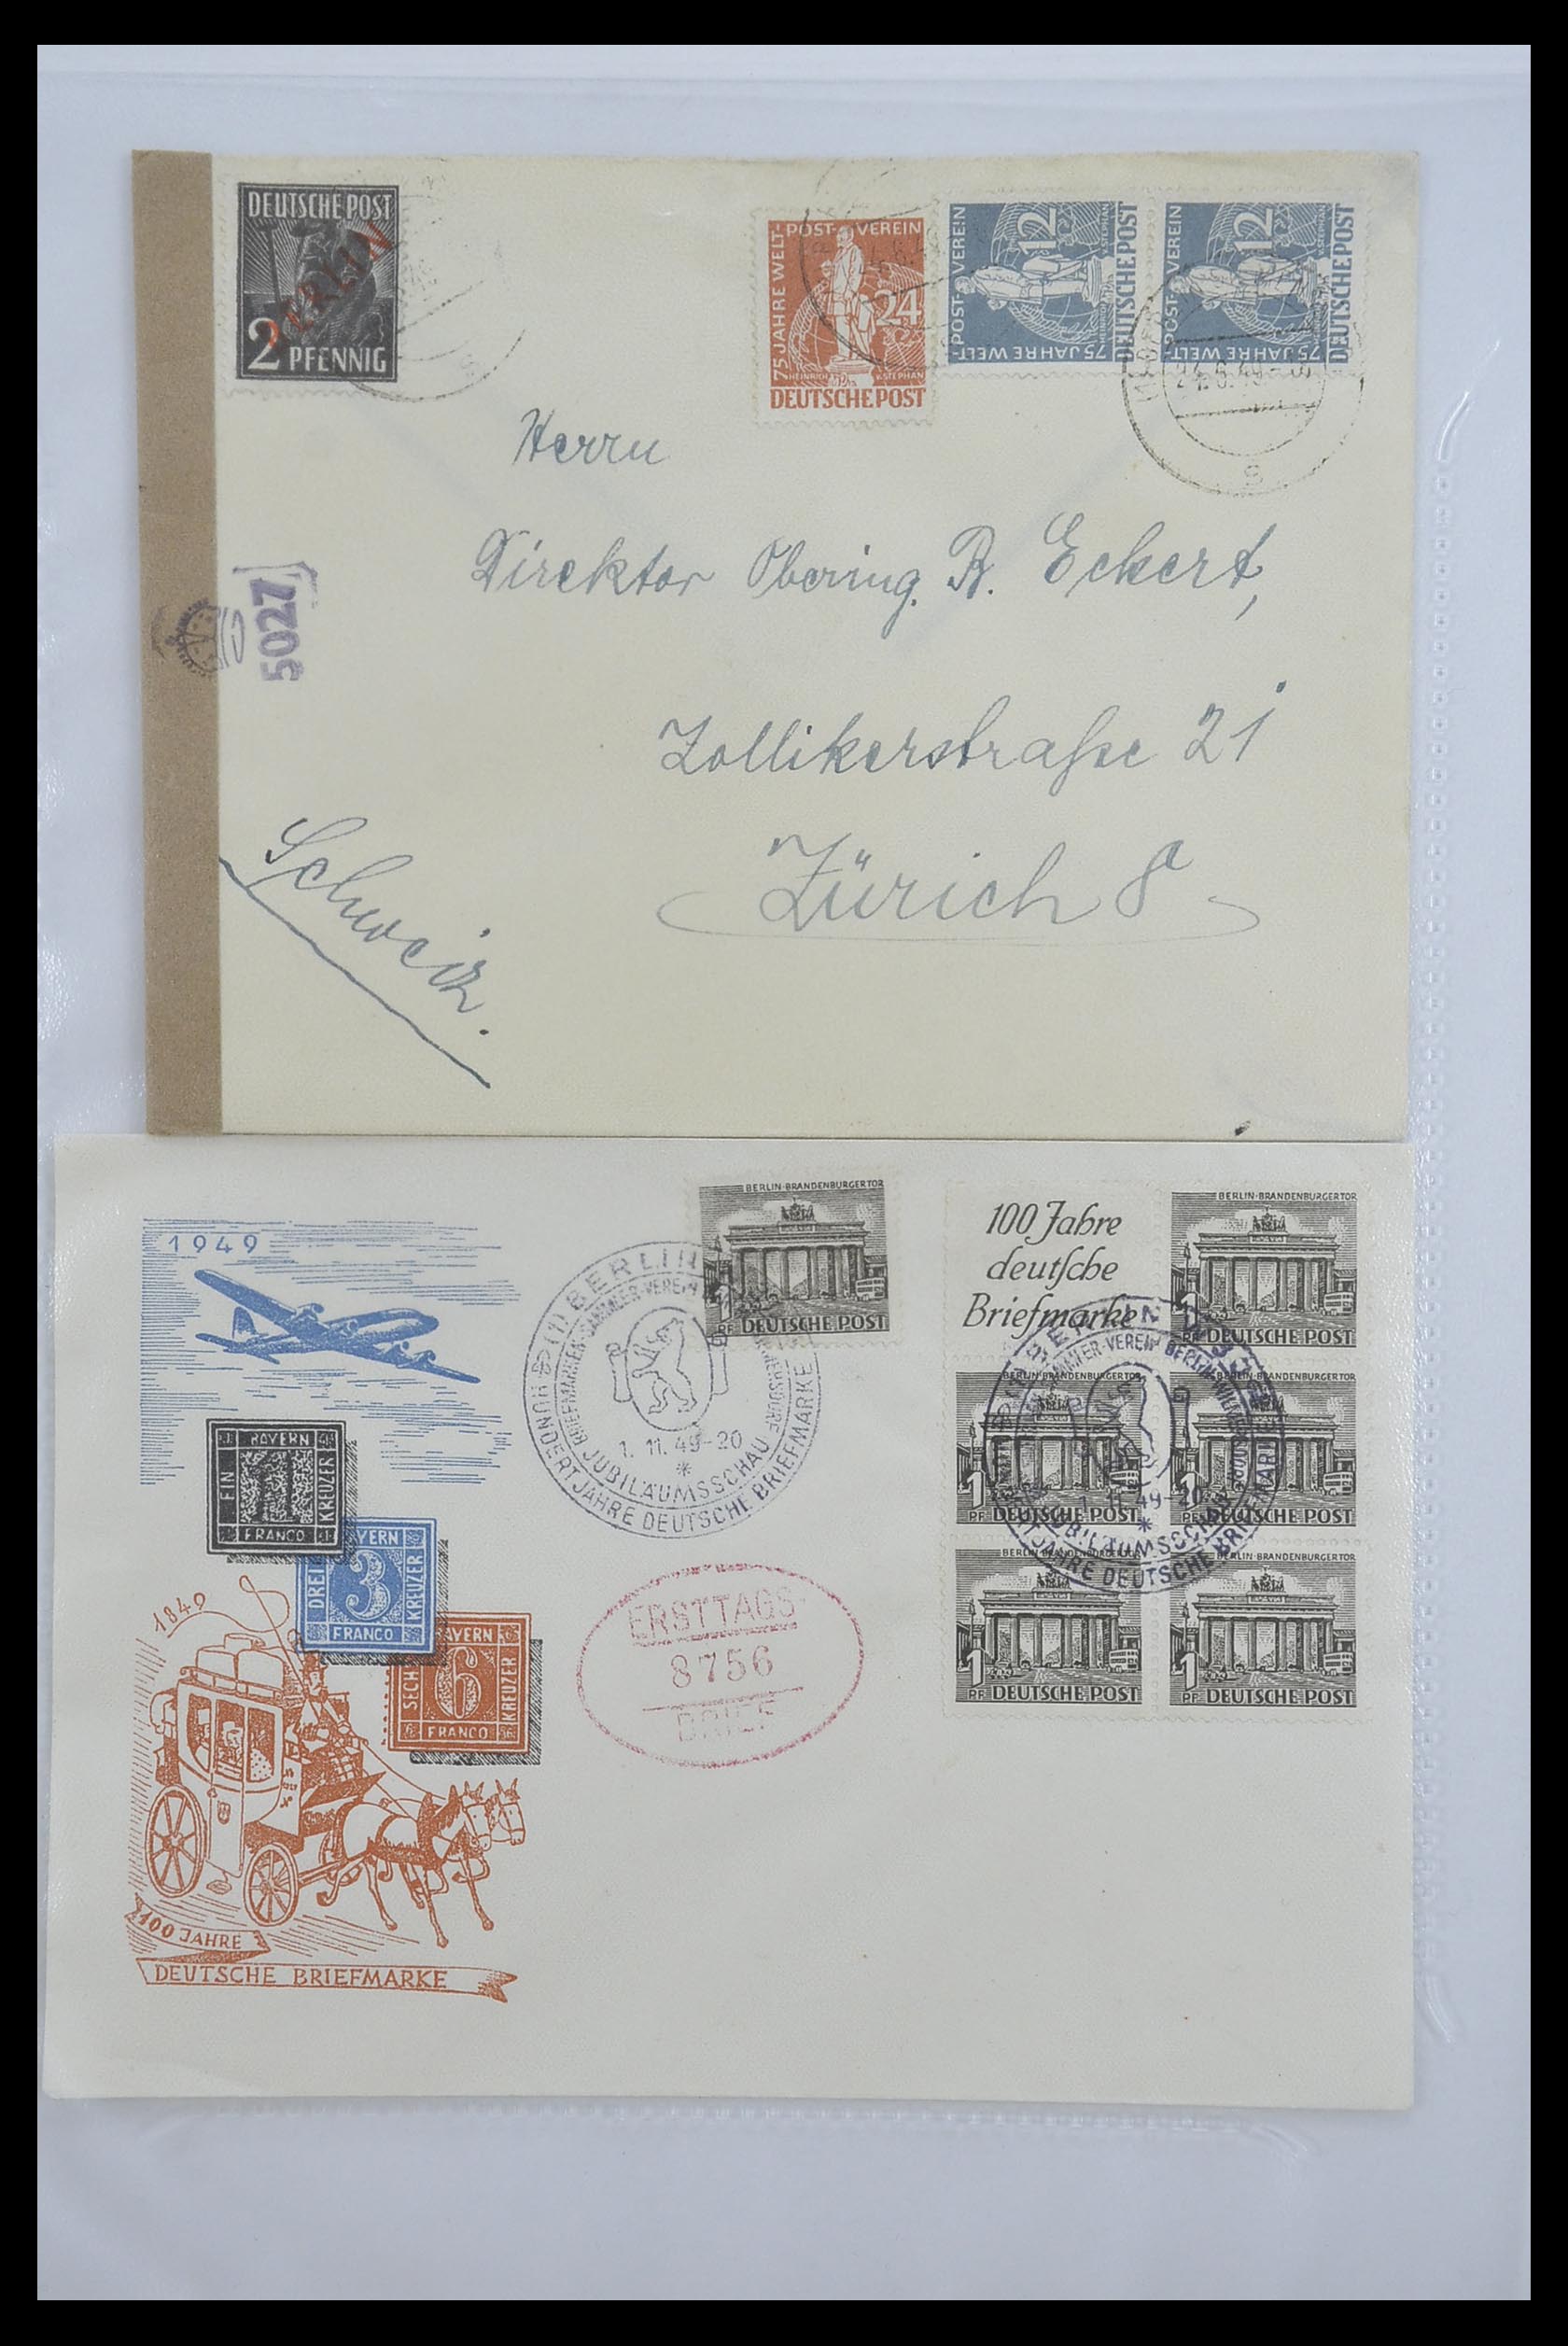 DEUTSCHE POST
BERLIN
2 PFENNIG
75 JAHRE WELT-POST-VEREIN
24
HEINRICH V. STEPHAN
DEUTSCHE POST
75 JAHRE WELT-POST-VEREIN
12
DEUTSCHE POST
75 JAHRE WELT-POST-VEREIN
12
HEINRICH V. STEPHAN
DEUTSCHE POST
24.6.49
Herrn
Direktor Obering. R. Eckert,
5027
Zollikerstraße 21
Zürich 8
Schweiz.
1949
BERLIN-BRANDENBURGER TOR
1 PF DEUTSCHE POST
(1) BERLIN
1. 11. 49-20
JUBILÄUMSSCHAU
HUNDERT JAHRE DEUTSCHE BRIEFMARKE
100 Jahre
deutsche
Briefmarke
BERLIN-BRANDENBURGER TOR
1 PF DEUTSCHE POST
BERLIN-BRANDENBURGER TOR
1 PF DEUTSCHE POST
BERLIN-BRANDENBURGER TOR
1 PF DEUTSCHE POST
1. 11. 49-20
JUBILÄUMSSCHAU
JAHRE DEUTSCHE BRIEFMARKE
BERLIN-BRANDENBURGER TOR
1 PF DEUTSCHE POST
BERLIN-BRANDENBURGER TOR
1 PF DEUTSCHE POST
BAYERN
EIN 1 KREUZER
FRANCO
BAYERN
DREI 3 KREUZER
FRANCO
BAYERN
SECHS 6 KREUZER
FRANCO
ERSTTAGS-
8756
BRIEF
1849
100 JAHRE
DEUTSCHE BRIEFMARKE